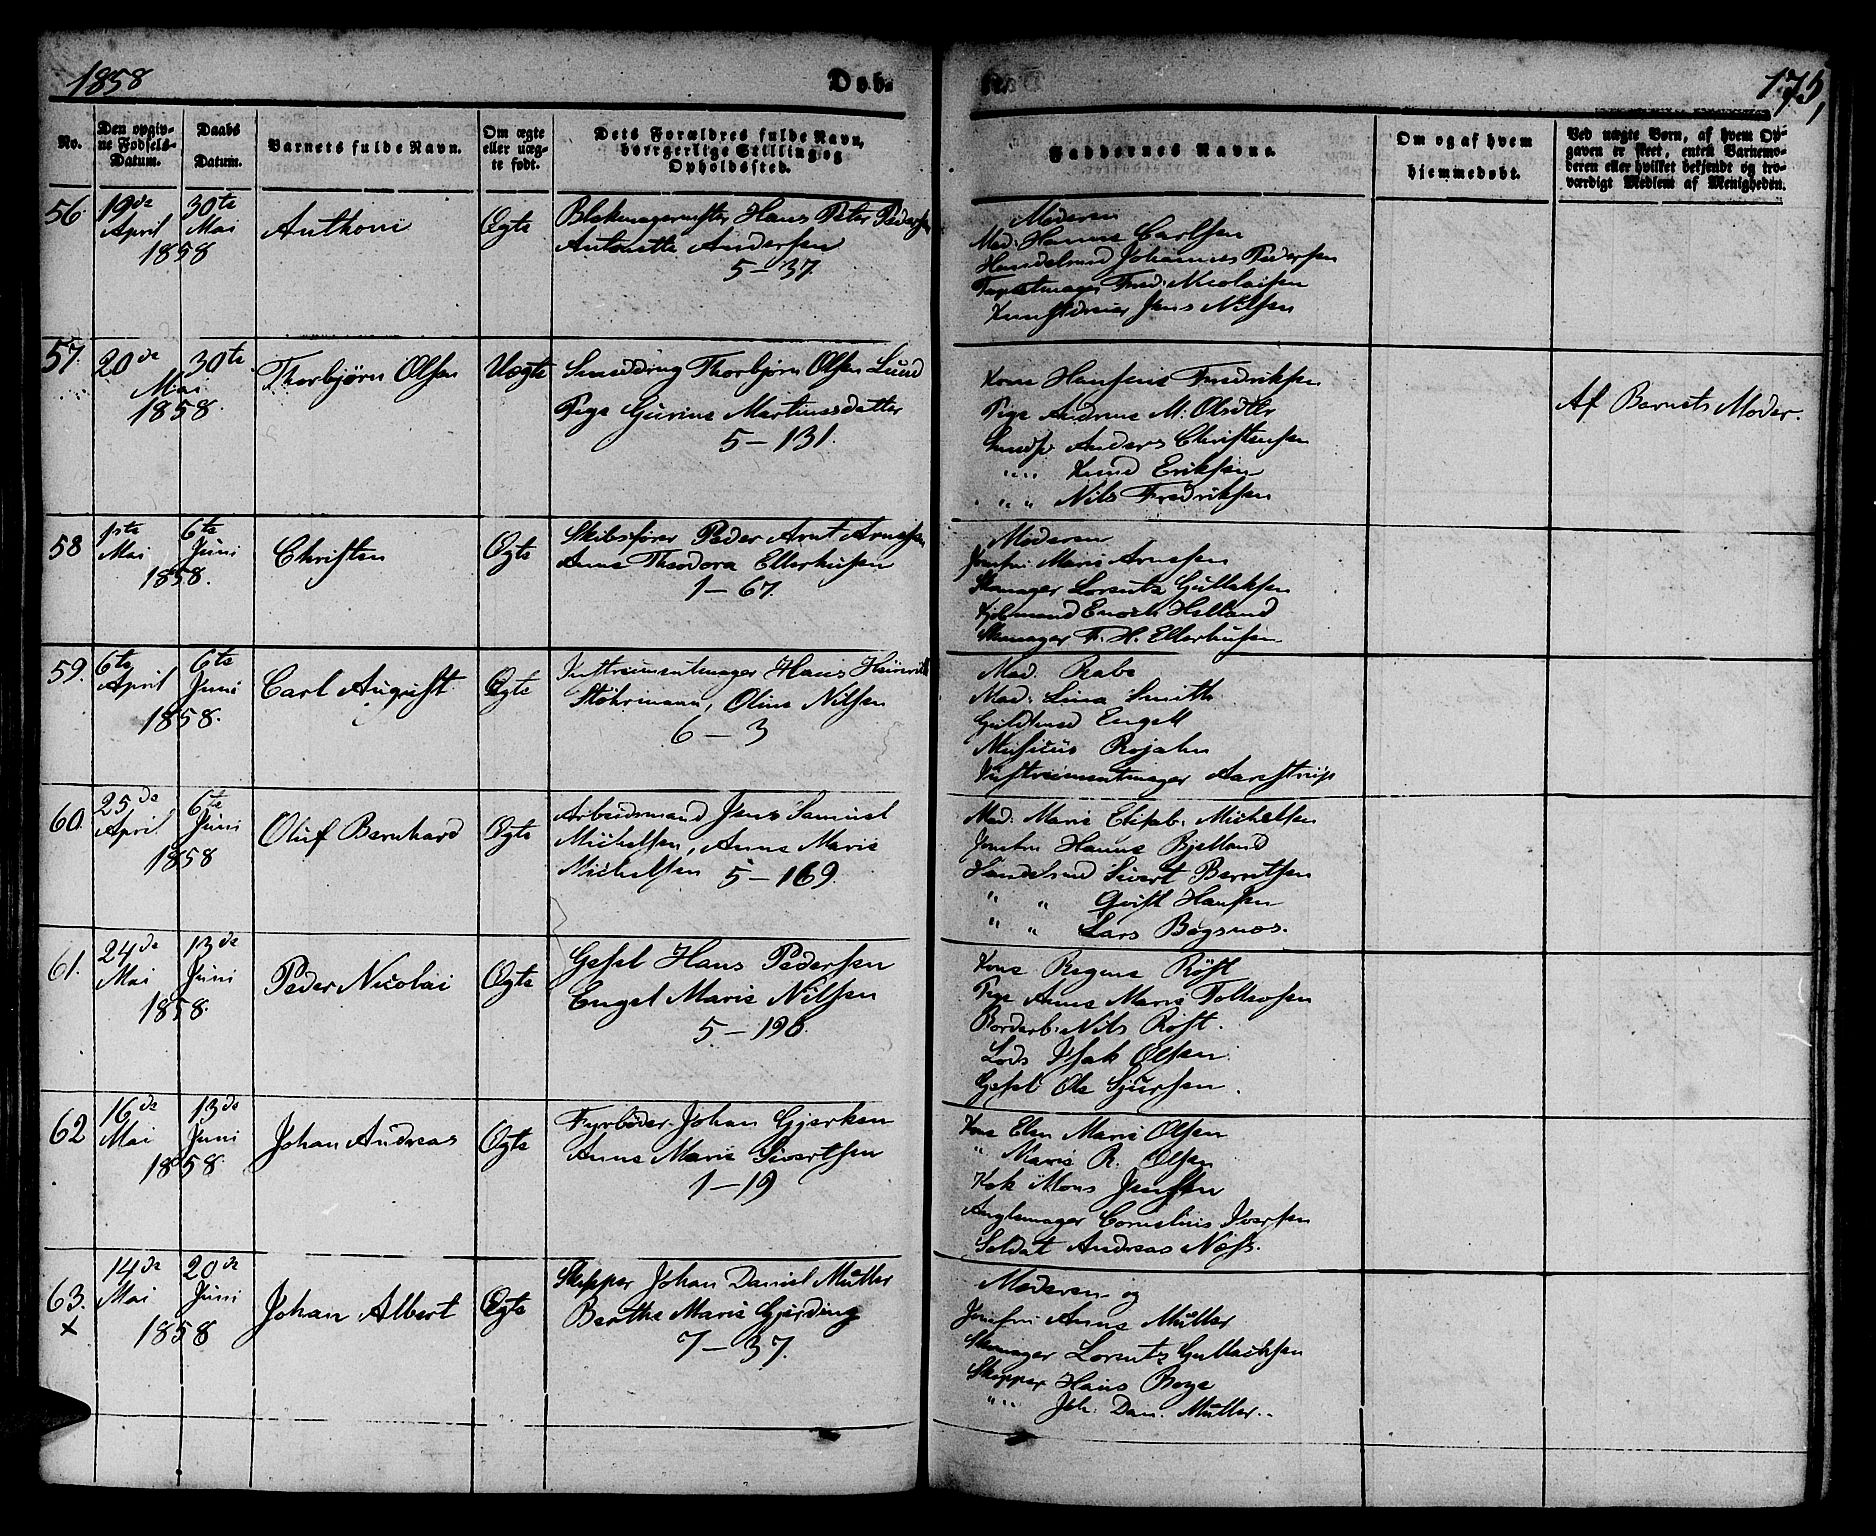 1858
Døb-
te.
175,
No.
Den opgiv-
ne Fødsels-
Datum.
Daabs
Datum.
Barnets fulde Navn.
Om ægte
eller uæg-
te født.
Dets Forældres fulde Navn,
borgerlige Stilling og
Opholdssted.
Faddernes Navne.
Om og af hvem
hjemmedøbt.
Ved uægte Børn, af hvem Op-
gaven er skeet, enten Barnemo-
deren eller hvilket bekjendt og tro-
værdigt Medlem af Menigheden.
56 19de April 30te Mai 1858 Anthoni Ægte
Blokmagermester Hans Peter Pedersen
Antonette Andersen
5 – 37.
Moderen
Mad. Hanna Carlsen
Handelsmd Johannes Pedersen
Tapetmager Fred: Nicolaisen
Kunstdreier Jens Nilsen
57. 20de 30te Mai 1858. Thorbjørn Olsen Uægte
Smeddreng Thorbjørn Olsen Lund
Pige Gurine Martinusdatter
5 – 131.
Kone Hansine Fredriksen
Pige Andrine M. Olsdtr
Smedsv Anders Christensen
" " Knud Eriksen
" " " Nils Fredriksen
Af Barnets Moder.
58 1ste Mai 6te Juni 1858. Christen Ægte
Skibsfører Peder Arnt Arnesen
Anna Theodora Ellerhusen
1 – 67.
Moderen
Jomfru Marie Arnesen
Skomager Lorentz Gullaksen
Kjøbmand Enoch Helland
Skomager F. H. Ellerhusen
59. 6te April 6te Juni 1858. Carl August Ægte
Instrumentmager Hans Heinrich
Støhrmann, Oline Nilsen
6 – 3
Mad. Rabe
Mad. Lina Smith
Guldsmed Engell
Musicus Rojahn
Instrumentmager Aarestrup
60. 25de April 6te Juni 1858 Oluf Bernhard Ægte
Arbeidsmand Jens Samuel
Michelsen, Anne Marie
Michelsen 5 – 169.
Mad. Marie Elisab. Michelsen
Jomfru Hanna Bjelland
Handelsmd Sivert Berntsen
" " Qvist Hansen
" " Lars Bøgsnos.
61. 24de Mai 13de Juni 1858. Peder Nicolai Ægte
Gesel Hans Pedersen
Engel Marie Nilsen
5 – 196.
Kone Regine Røst
Pige Anne Marie Tollefsen
Bordarb. Nils Røst.
Lods Isak Olsen
Gesel Ole Sjursen.
62 16de Mai 13de Juni 1858. Johan Andreas Ægte
Fyrbøder Johan Gjerken
Anne Marie Sivertsen
1 – 19
Kone Elen Marie Olsen
" Marie R. Olsen
Kok Mons Jensen
Anglemager Cornelius Iversen
Soldat Andreas Næss.
63. × 14de Mai 20de Juni 1858 Johan Albert Ægte
Skipper Johan Daniel Müller
Berthe Marie Gjerding
7 – 37.
Moderen og
Jomfru Anne Müller
Skomager Lorentz Gullachsen
Skipper Hans Boge
" " Joh. Dan. Müller.